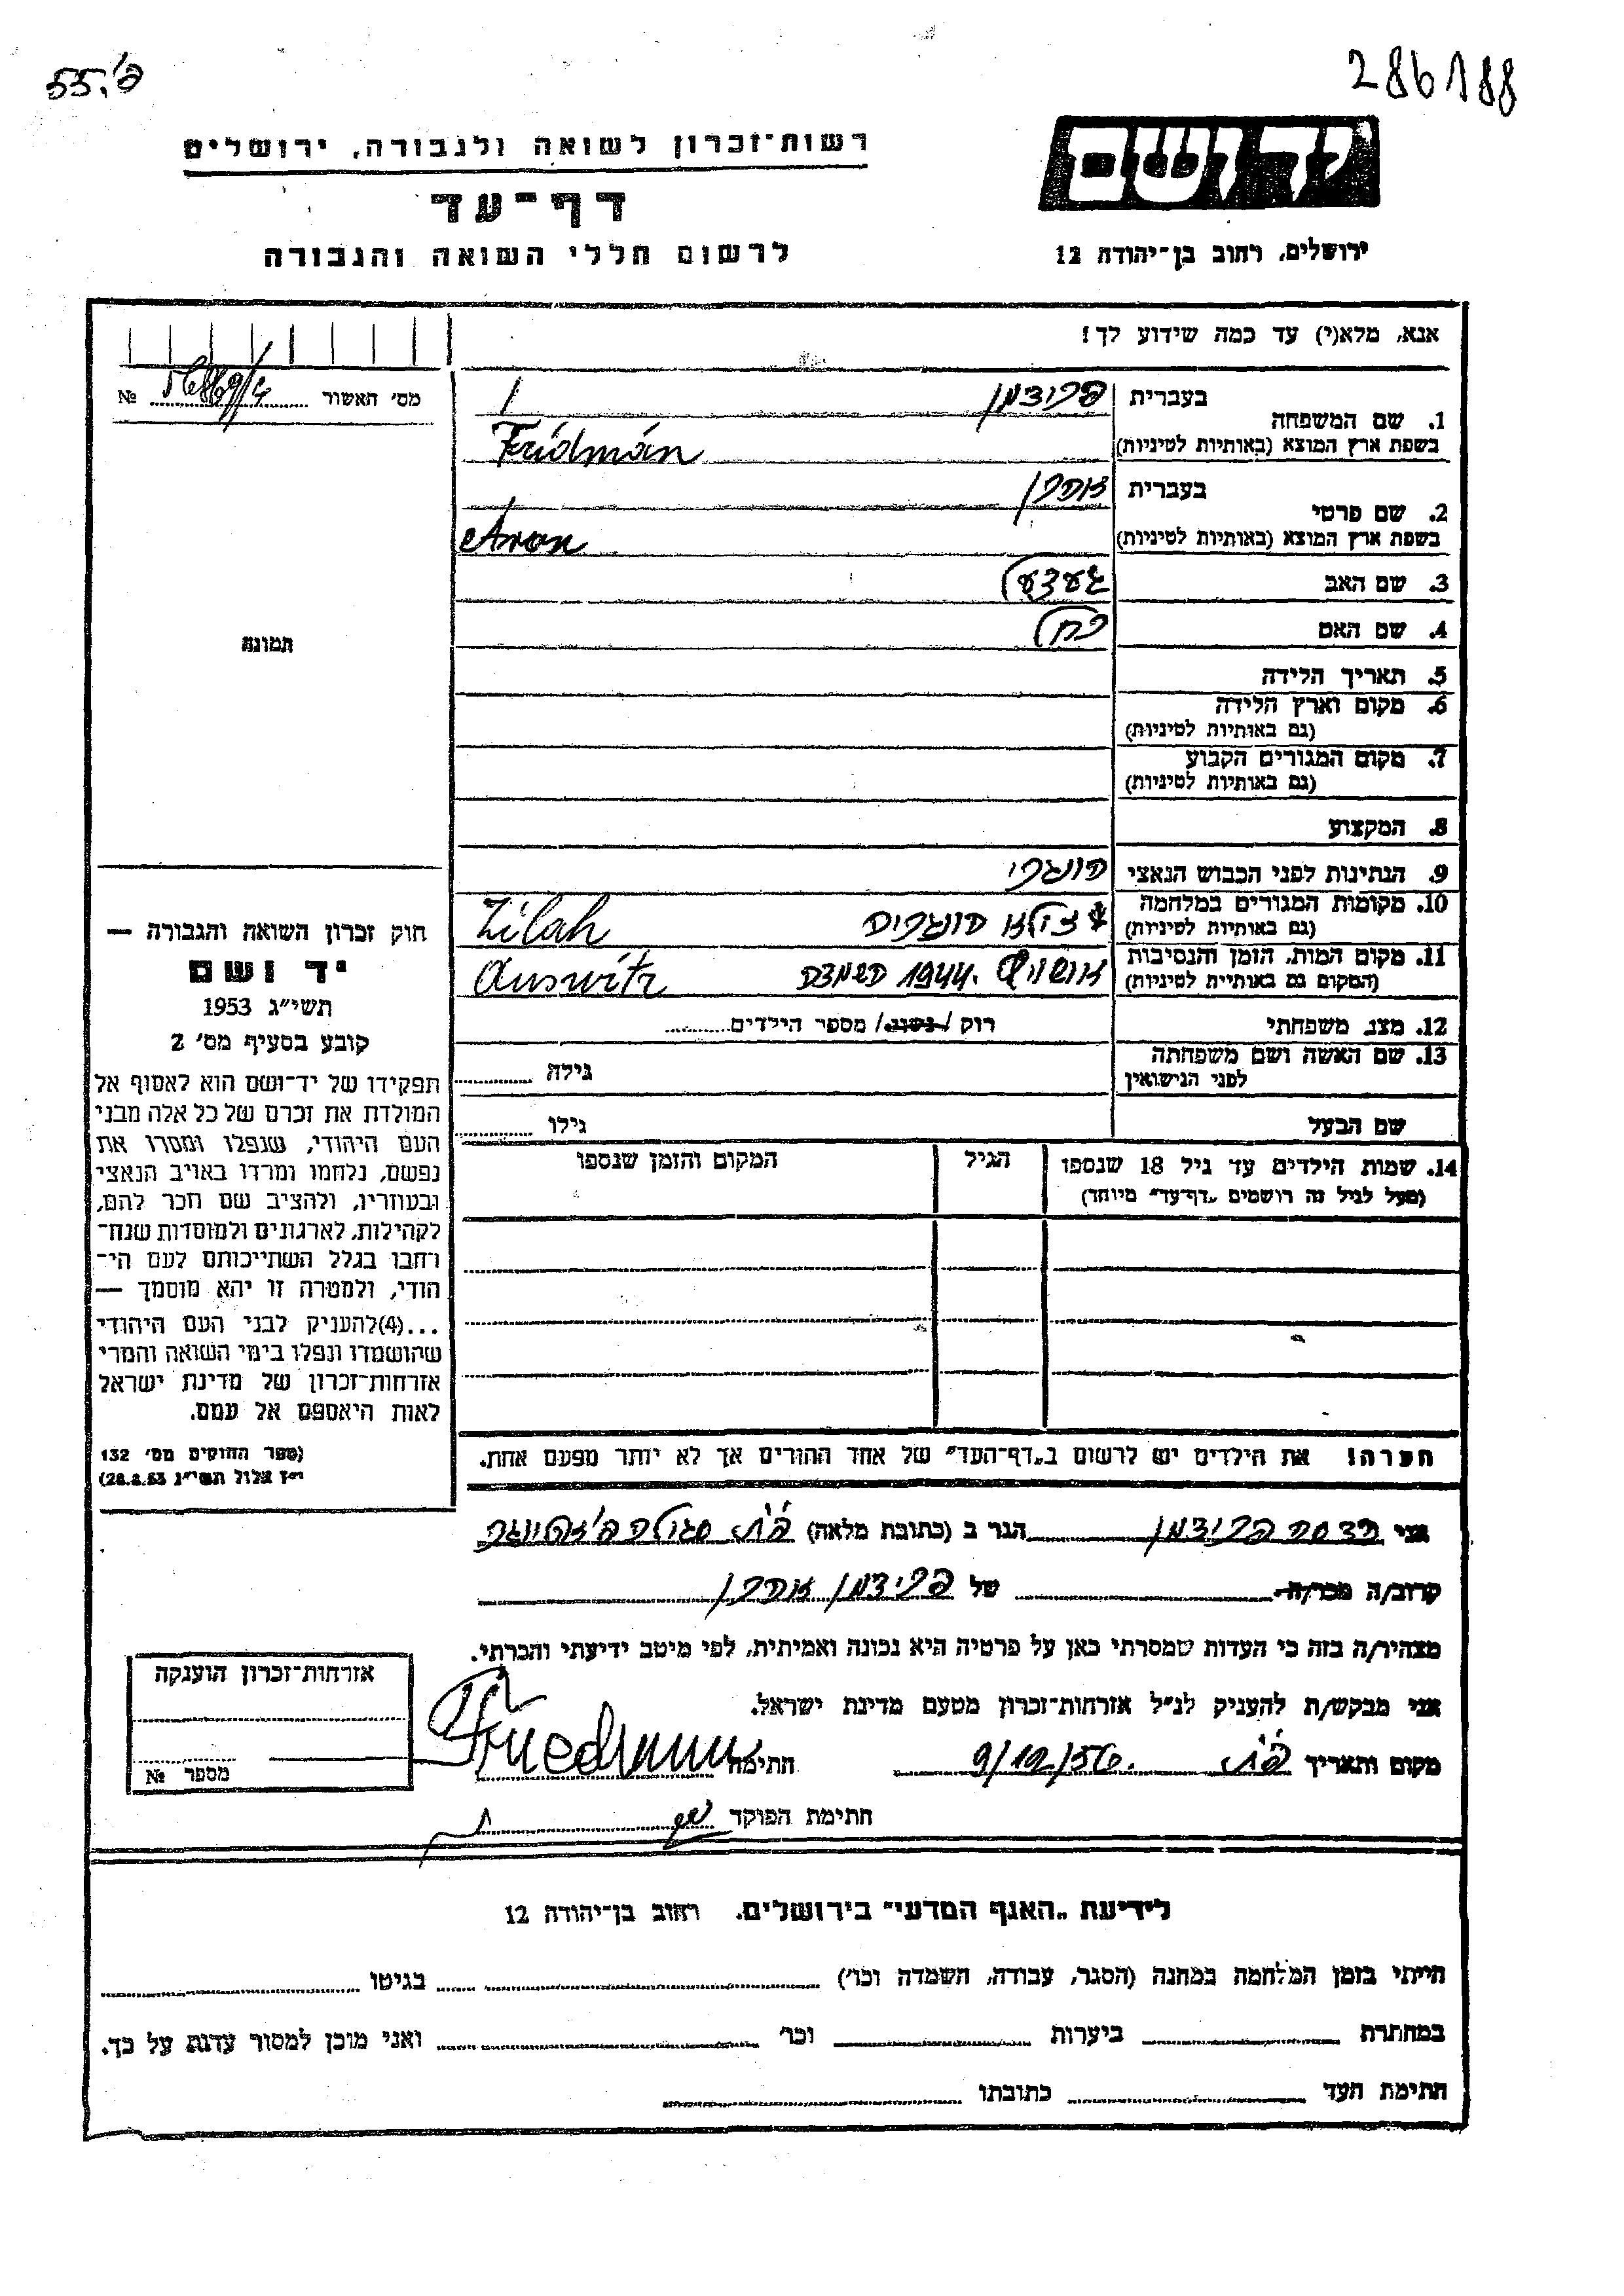 55. פ'
286188
רשות־זכרון לשואה ולגבורה, ירושלים
יד ושם
דף־עד
לרשום חללי השואה והגבורה
ירושלים, רחוב בן־יהודה 12
אנא, מלא(י) עד כמה שידוע לך!
מס' האשור № 
1. שם המשפחה בעברית פרידמן
בשפת ארץ המוצא (באותיות לטיניות) Fridmán
2. שם פרטי בעברית אהרן
בשפת ארץ המוצא (באותיות לטיניות) Aron
3. שם האב
4. שם האם
תמונה
5. תאריך הלידה
6. מקום וארץ הלידה
(גם באותיות לטיניות)
7. מקום המגורים הקבוע
(גם באותיות לטיניות)
8. המקצוע
9. הנתינות לפני הכבוש הנאצי הונגרי
10. מקומות המגורים במלחמה
(גם באותיות לטיניות) הונגריה Zilah
11. מקום המות, הזמן והנסיבות
(המקום גם באותיית לטיניות) אושויץ 1944. השמדה Auswitz
12. מצב משפחתי רוק / נשוי / מספר הילדים
13. שם האשה ושם משפחתה
לפני הנישואין גילה
שם הבעל גילו
14. שמות הילדים עד גיל 18 שנספו
(מעל לגיל זה רושמים "דף־עד" מיוחד)
הגיל
המקום והזמן שנספו
חוק זכרון השואה והגבורה —
יד ושם
תשי"ג 1953
קובע בסעיף מס' 2
תפקידו של יד־ושם הוא לאסוף אל
המולדת את זכרם של כל אלה מבני
העם היהודי, שנפלו ומסרו את
נפשם, נלחמו ומרדו באויב הנאצי
ובעוזריו, ולהציב שם וזכר להם,
לקהילות, לארגונים ולמוסדות שנח־
רחבו בגלל השתייכותם לעם הי־
הודי, ולמטרה זו יהא מוסמך —
...(4)להעניק לבני העם היהודי
שהושמדו ונפלו בימי השואה והמרי
אזרחות־זכרון של מדינת ישראל
לאות היאספם אל עמם.
(ספר החוקים מס' 132
י"ז אלול תשי"ג 28.8.53)
הערה! את הילדים יש לרשום ב"דף־העד" של אחד ההורים אך לא יותר מפעם אחת.
אני הדסה פרידמן הגר ב (כתובת מלאה) פ"ת סגולה
קרוב/ה מכר/ה של פרידמן אהרן
מצהיר/ה בזה כי העדות שמסרתי כאן על פרטיה היא נכונה ואמיתית, לפי מיטב ידיעתי והכרתי.
אני מבקש/ת להעניק לנ"ל אזרחות־זכרון מטעם מדינת ישראל.
מקום ותאריך פ"ת 9/12/56. חתימה Friedmann
חתימת הפוקד
אזרחות־זכרון הוענקה
מספר №
לידיעת "האגף המדעי" בירושלים, רחוב בן־יהודה 12
הייתי בזמן המלחמה במחנה (הסגר, עבודה, השמדה וכו') בגיטו
במחתרת ביערות וכו' ואני מוכן למסור עדות על כך.
חתימת העד כתובתו